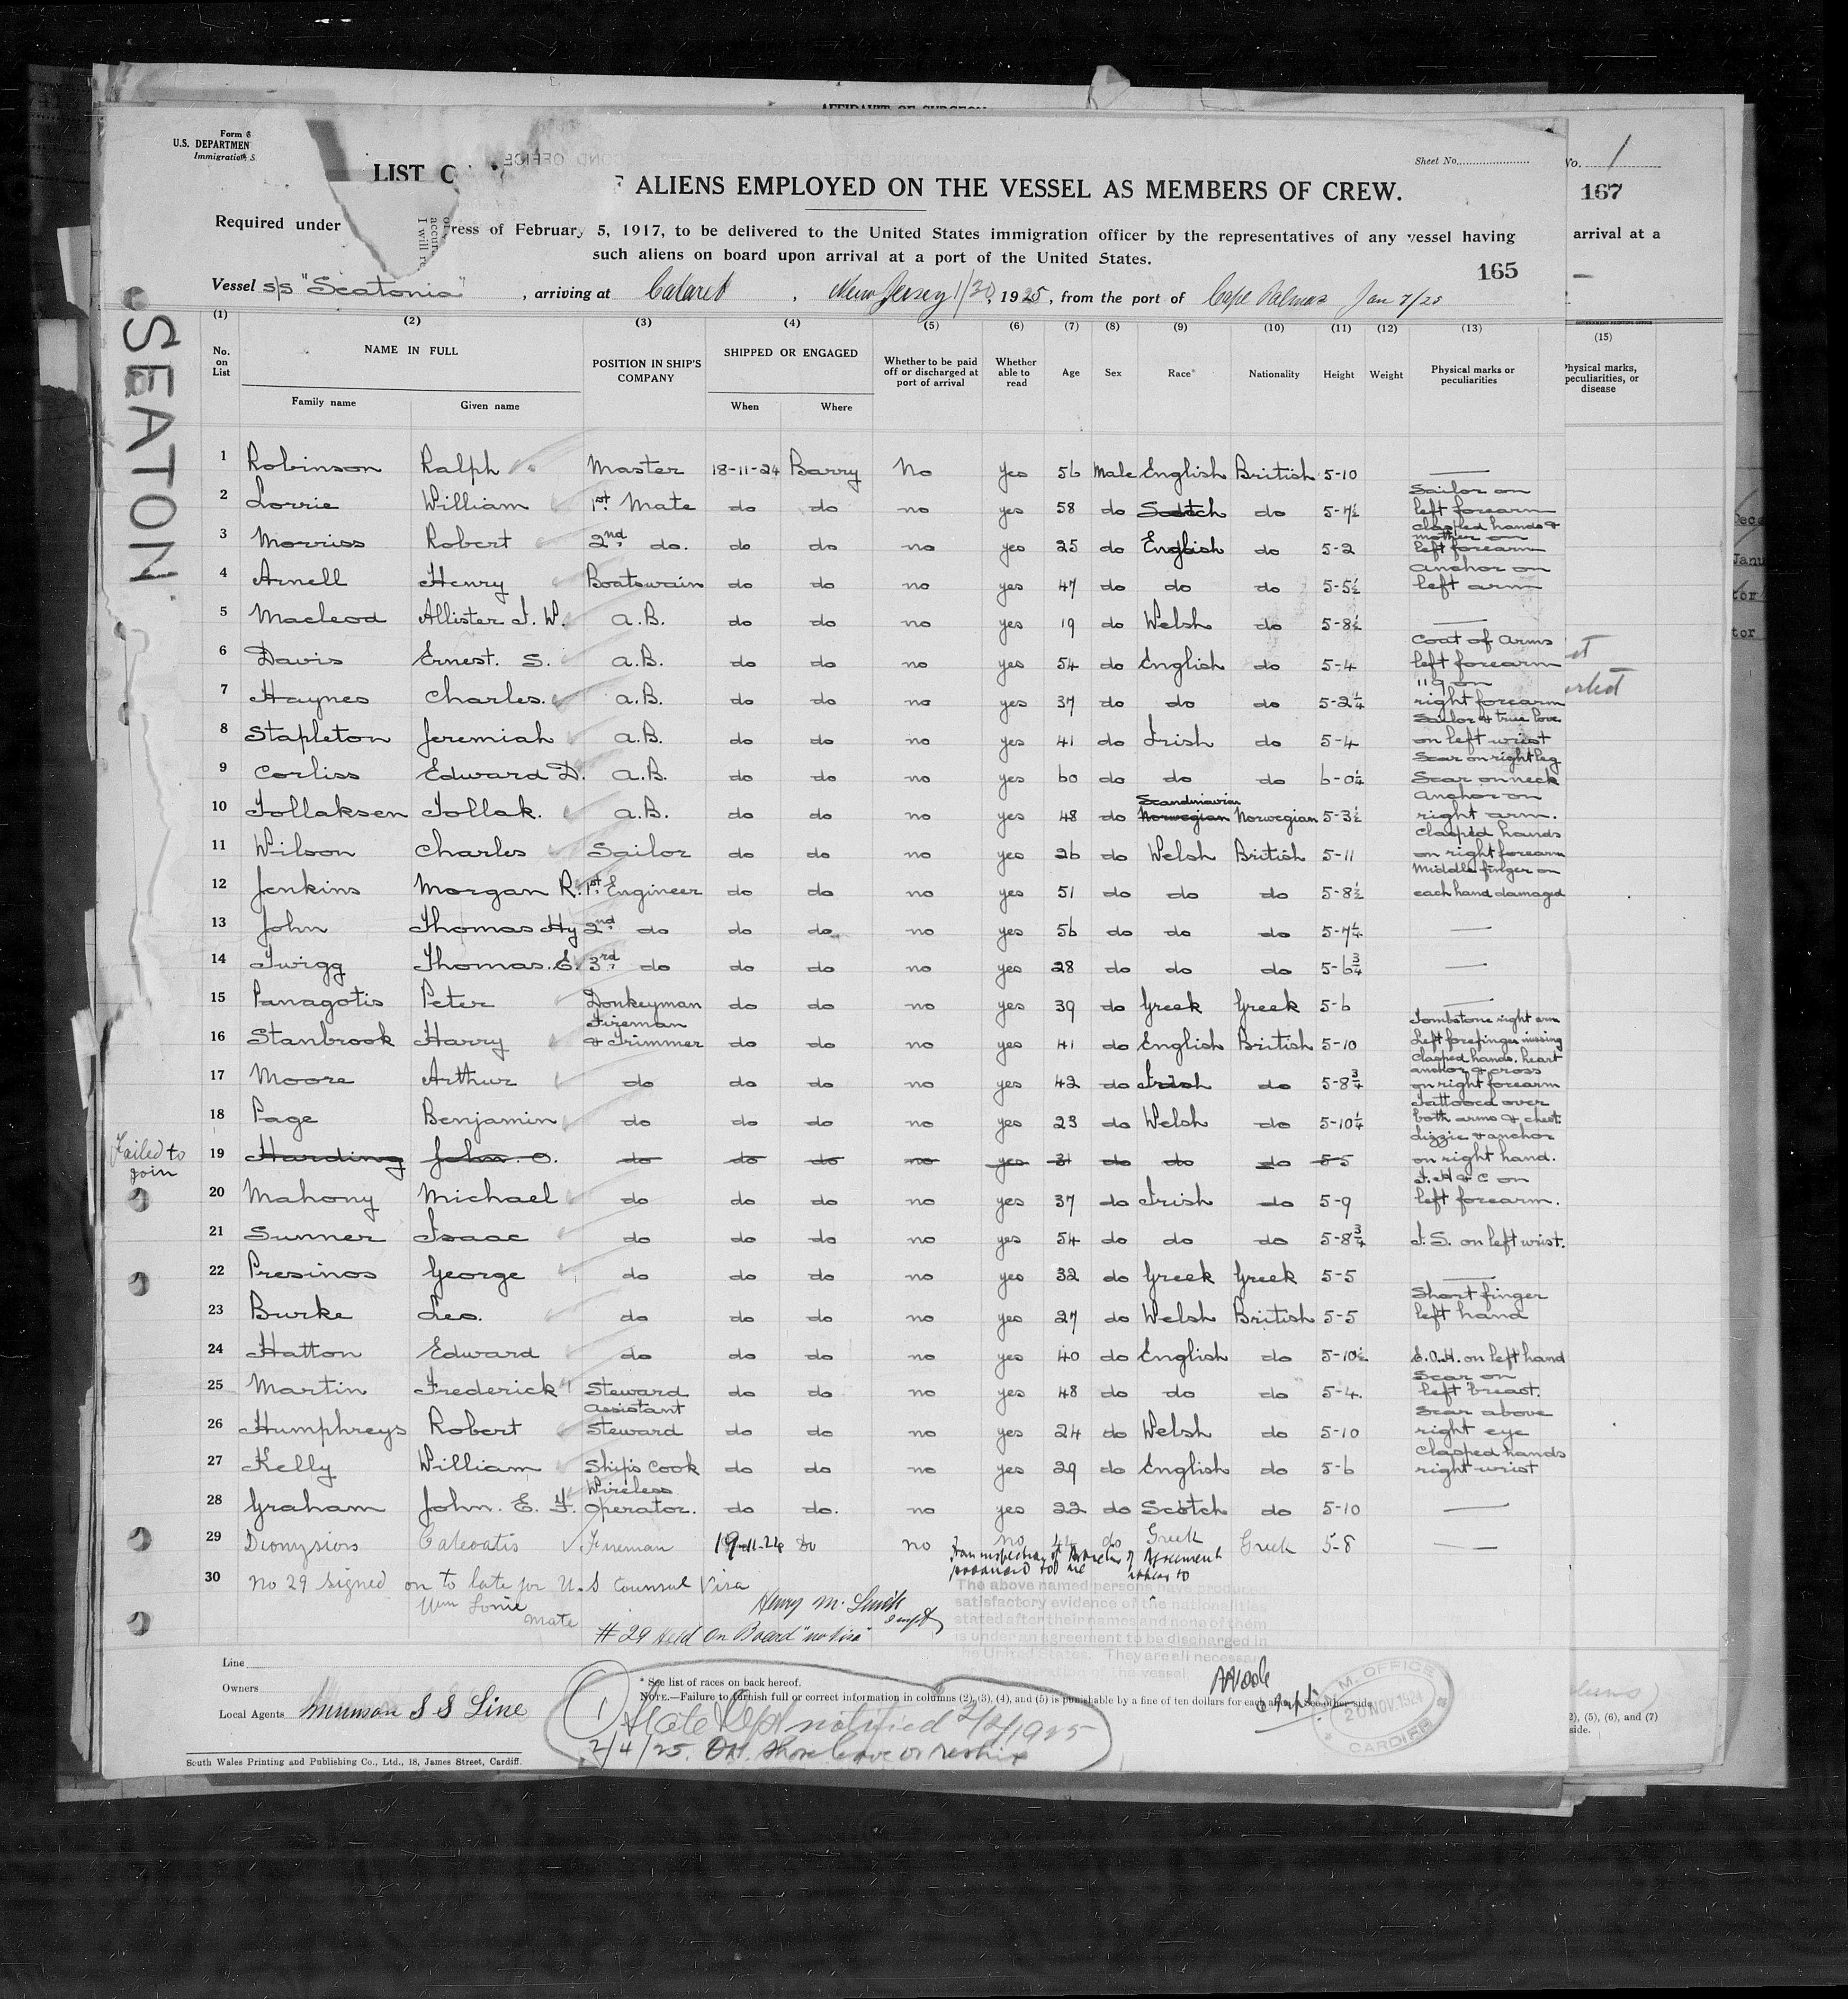 AFFIDAVIT OF SURGEON
Form 6
U.S. DEPARTMEN
Immigration S
Sheet No.
No. 1
167
LIST O F ALIENS EMPLOYED ON THE VESSEL AS MEMBERS OF CREW.
Required under ress of February 5, 1917, to be delivered to the United States immigration officer by the representatives of any vessel having
such aliens on board upon arrival at a port of the United States.
arrival at a
165
Vessel s/s "Seatonia", arriving at Cataret, New Jersey 1/30, 1925, from the port of Cape Palmas Jan 7/25
SEATON
(1) (2) (3) (4) (5) (6) (7) (8) (9) (10) (11) (12) (13) (15)
No. on List NAME IN FULL POSITION IN SHIP'S COMPANY SHIPPED OR ENGAGED Whether to be paid off or discharged at port of arrival Whether able to read Age Sex Race* Nationality Height Weight Physical marks or peculiarities
Physical marks, peculiarities, or disease
Family name Given name When Where
1 Robinson Ralph Master 18-11-24 Barry No Yes 56 Male English British 5-10 —
2 Lorrie William 1st Mate do do no yes 58 do Scotch do 5-7½ Sailor on left forearm
3 Morriss Robert 2nd do. do do no yes 25 do English do 5-2 clasped hands & mother on left forearm
4 Arnell Henry Boatswain do do no yes 47 do do do 5-5½ Anchor on left arm
5 Macleod Allister J. W. A.B. do do no yes 19 do Welsh do 5-8½ —
6 Davis Ernest. S. A.B. do do no yes 54 do English do 5-4 Coat of Arms left forearm
7 Haynes Charles. A.B. do do no yes 37 do do do 5-2¼ 119 on right forearm
8 Stapleton Jeremiah A.B. do do no yes 41 do Irish do 5-4 Sailor & true love on left wrist
9 Corliss Edward D. A.B. do do no yes 60 do do do 6-0¼ Scar on right leg Scar on neck
10 Tollaksen Tollak. A.B. do do no yes 48 do Scandinavian Norwegian Norwegian 5-3½ Anchor on right arm.
11 Wilson Charles Sailor do do no yes 26 do Welsh British 5-11 Clasped hands on right forearm
12 Jenkins Morgan R. 1st Engineer do do no yes 51 do do do 5-8½ Middle finger on each hand damaged
13 John Thomas Hy 2nd do do do no yes 56 do do do 5-7¼ —
14 Twigg Thomas. E. 3rd do do do no yes 28 do do do 5-6¾ —
15 Panagotis Peter Donkeyman do do no yes 39 do Greek Greek 5-6 —
16 Stanbrook Harry Fireman & Trimmer do do no yes 41 do English British 5-10 Tombstone right arm Left forefinger missing
17 Moore Arthur do do do no yes 42 do Irish do 5-8¾ Clasped hands. heart anchor & cross on right forearm
18 Page Benjamin do do do no yes 23 do Welsh do 5-10¼ Tattooed over both arms & chest.
Failed to join
19 Harding John. O. do do do no yes 31 do do do 5-5 Lizzie & anchor on right hand.
20 Mahony Michael do do do no yes 37 do Irish do 5-9 J. H & C on left forearm.
21 Sunner Isaac do do do no yes 54 do do do 5-8¾ I. S. on left wrist.
22 Presinos George do do do no yes 32 do Greek Greek 5-5 —
23 Burke Leo. do do do no yes 27 do Welsh British 5-5 Short finger left hand
24 Hatton Edward do do do no yes 40 do English do 5-10½ E.O.H. on left hand
25 Martin Frederick Steward do do no yes 48 do do do 5-4. Scar on left breast.
26 Humphreys Robert Assistant Steward do do no yes 24 do Welsh do 5-10 Scar above right eye
27 Kelly William Ship's Cook do do no yes 29 do English do 5-6 Clasped hands right wrist
28 Graham John. E. F. Wireless Operator. do do. no yes 22 do Scotch do 5-10 —
29 Dionysios Calevatis Fireman 19-11-24 Do no no 42 do Greek Greek 5-8 —
30 No 29 signed on to late for U.S Counsul Visa
From inspection of Articles of Agreement
Wm Lorrie
Mate
Henry M. Smith
Inspt
#29 Held On Board "no Visa"
The above named persons have produced
satisfactory evidence of the nationalities
stated after their names and none of them
is under an agreement to be discharged in
the United States. They are all necessary
operation of the vessel
Line
Owners
Local Agents Munson S S Line
* See list of races on back hereof.
NOTE.—Failure to furnish full or correct information in columns (2), (3), (4), and (5) is punishable by a fine of ten dollars for each alien. See other side.
2), (5), (6), and (7)
side.
M.M. OFFICE
20 NOV. 1924
CARDIFF
1 State Dept notified 2/2/1925
2/4/25. shore leave or reship
South Wales Printing and Publishing Co., Ltd., 18, James Street, Cardiff.